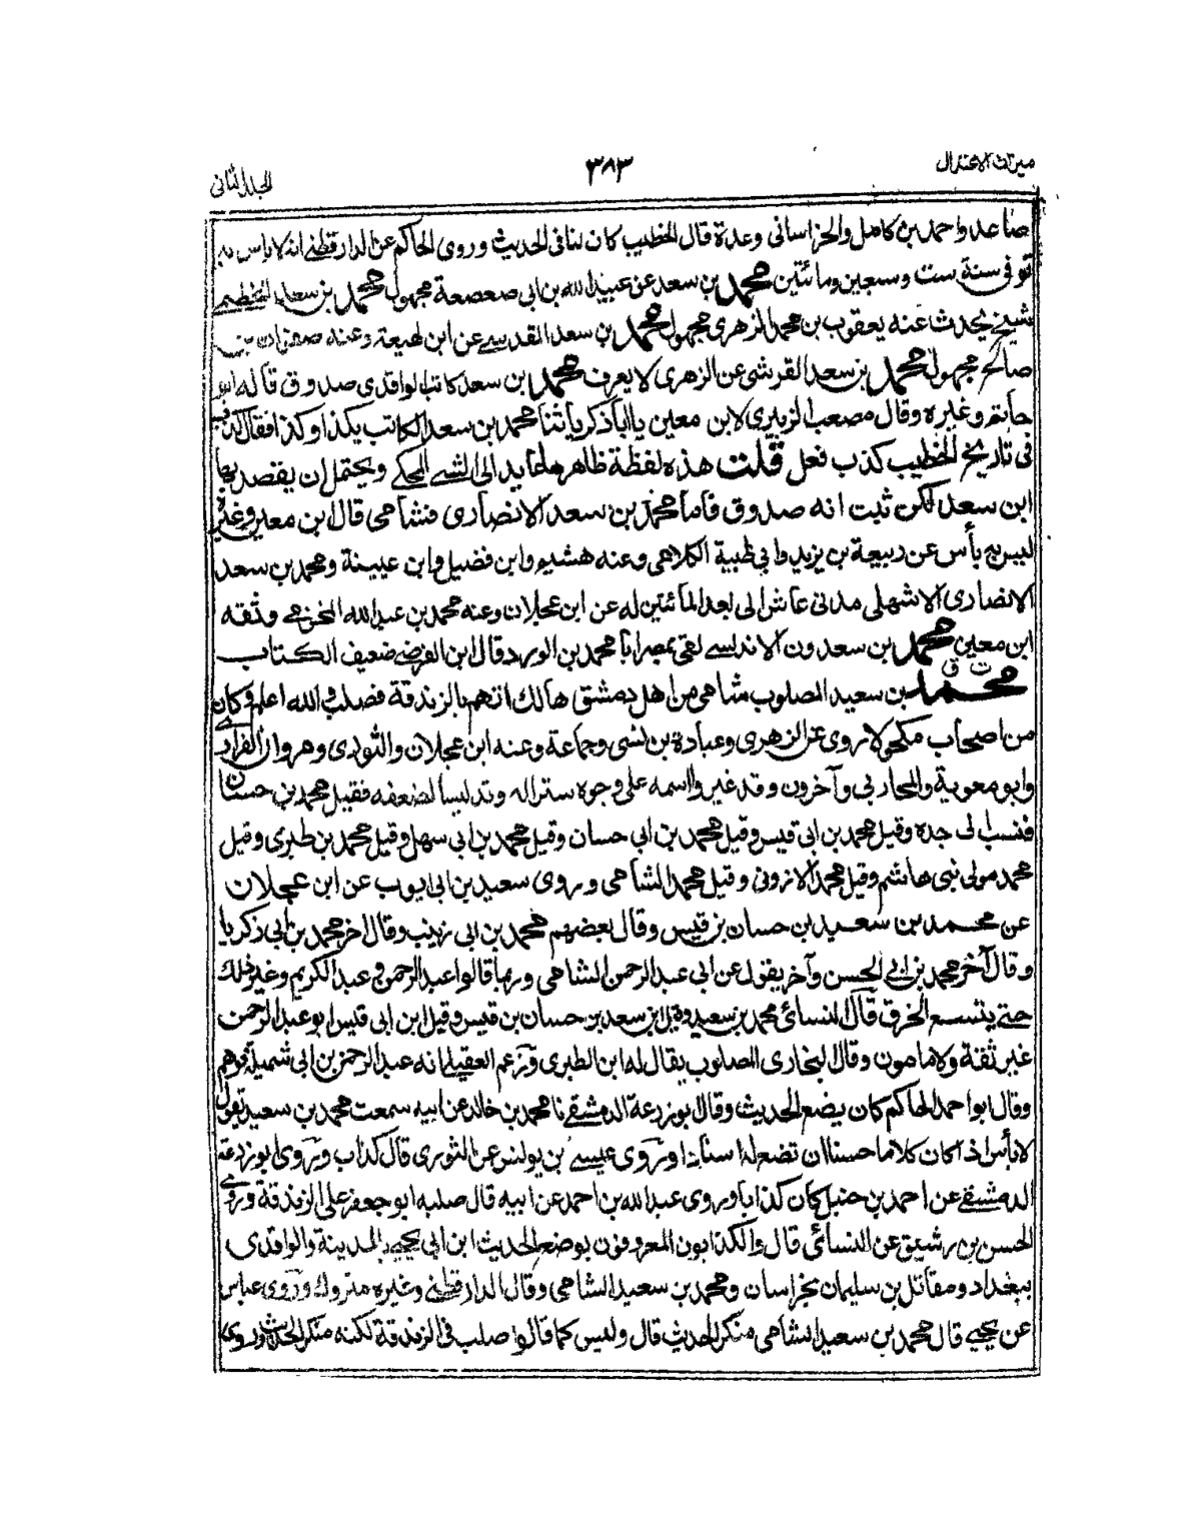 ميزان الاعتدال
٣٨٣
الجلد الثانى
صاعد واحمد بن كامل والخراسانى وعدة قال الخطيب كان لينا فى الحديث وروى الحاكم عن الدارقطنى انه لا باس به
توفى سنة ست وسبعين ومائتين محمد بن سعد عن عبيد الله بن ابى صعصعة مجهول محمد بن سعد الخطمى
شيخ يحدث عنه يعقوب بن محمد الزهرى مجهول محمد بن سعد المقدسى عن ابن لهيعة وعنه صفوان بن
صالح مجهول محمد بن سعد القرشى عن الزهرى لا يعرف محمد ابن سعد كاتب الواقدى صدوق قاله ابو
حاتم وغيره وقال مصعب الزبيرى لابن معين يا ابا ذكريا ثنا محمد بن سعد الكاتب بكذا وكذا فقال كذب
فى تاريخ الخطيب كذب فعل قلت هذه لفظة ظاهرها عايد الى الشئ المحكى ويحتمل ان يقصد بها
ابن سعد لكن ثبت انه صدوق فاما محمد بن سعد الانصارى فشامى قال ابن معين وغيره
ليس به بأس عن ربيعة بن يزيد وابى ظبية الكلاعى وعنه هشيم وابن فضيل وابن عيينة ومحمد بن سعد
الانصارى الاشهلى مدنى عاش الى بعد المائتين له عن ابن عجلان وعنه محمد بن عبد الله المخرمى وثقه
ابن معين محمد بن سعدون الاندلسى لقى بمصر ابا محمد بن الورد قال ابن الفرضى ضعيف الكتاب
محمد بن سعيد المصلوب شامى من اهل دمشق هالك اتهم بالزندقة فصلب والله اعلم وكان
من اصحاب مكحول روى عن الزهرى وعبادة بن نسى وجماعة وعنه ابن عجلان والثورى ومروان الفزارى
وابو معوية والمحاربى وآخرون وقد غيروا اسمه على وجوه سترا له وتدليسا لضعفه فقيل محمد بن حسان
فنسب الى جده وقيل محمد بن ابى قيس وقيل محمد بن ابى حسان وقيل محمد بن ابى سهل وقيل محمد بن طبرى وقيل
محمد مولى بنى هاشم وقيل محمد الازدى وقيل محمد الشامى وروى سعيد بن ابى ايوب عن ابن عجلان
عن محمد بن سعيد بن حسان بن قيس وقال بعضهم محمد بن ابى زينب وقال اخر محمد بن ابى زكريا
وقال آخر محمد بن ابى الحسن وآخر يقول عن ابى عبد الرحمن الشامى وربما قالوا عبد الرحمن وعبد الكريم وغير ذلك
حتى يتسع الخرق قال النسائى محمد بن سعيد وقيل ابن سعد بن حسان بن قيس وقيل ابن ابى قيس ابو عبد الرحمن
غير ثقة ولا مامون وقال البخارى المصلوب يقال له ابن الطبرى وزعم العقيلى انه عبد الرحمن بن ابى شميلة فوهم
وقال ابو احمد الحاكم كان يضع الحديث وقال ابو زرعة الدمشقى نا محمد بن خالد عن ابيه سمعت محمد بن سعيد يقول
لا بأس اذا كان كلاما حسنا ان تضع له اسنادا وروى عيسى بن يونس عن الثورى قال كذاب وروى ابو زرعة
الدمشقى عن احمد بن حنبل كان كذابا وروى عبد الله بن احمد عن ابيه قال صلبه ابو جعفر على الزندقة وروى
الحسن بن رشيق عن النسائى قال والكذابون المعروفون بوضع الحديث ابن ابى يحيى بالمدينة والواقدى
ببغداد ومقاتل بن سليمان بخراسان ومحمد بن سعيد الشامى وقال الدارقطنى وغيره متروك وروى عباس
عن يحيى قال محمد بن سعيد الشامى منكر الحديث قال وليس كما قالوا صلب فى الزندقة لكنه منكر الحديث وروى